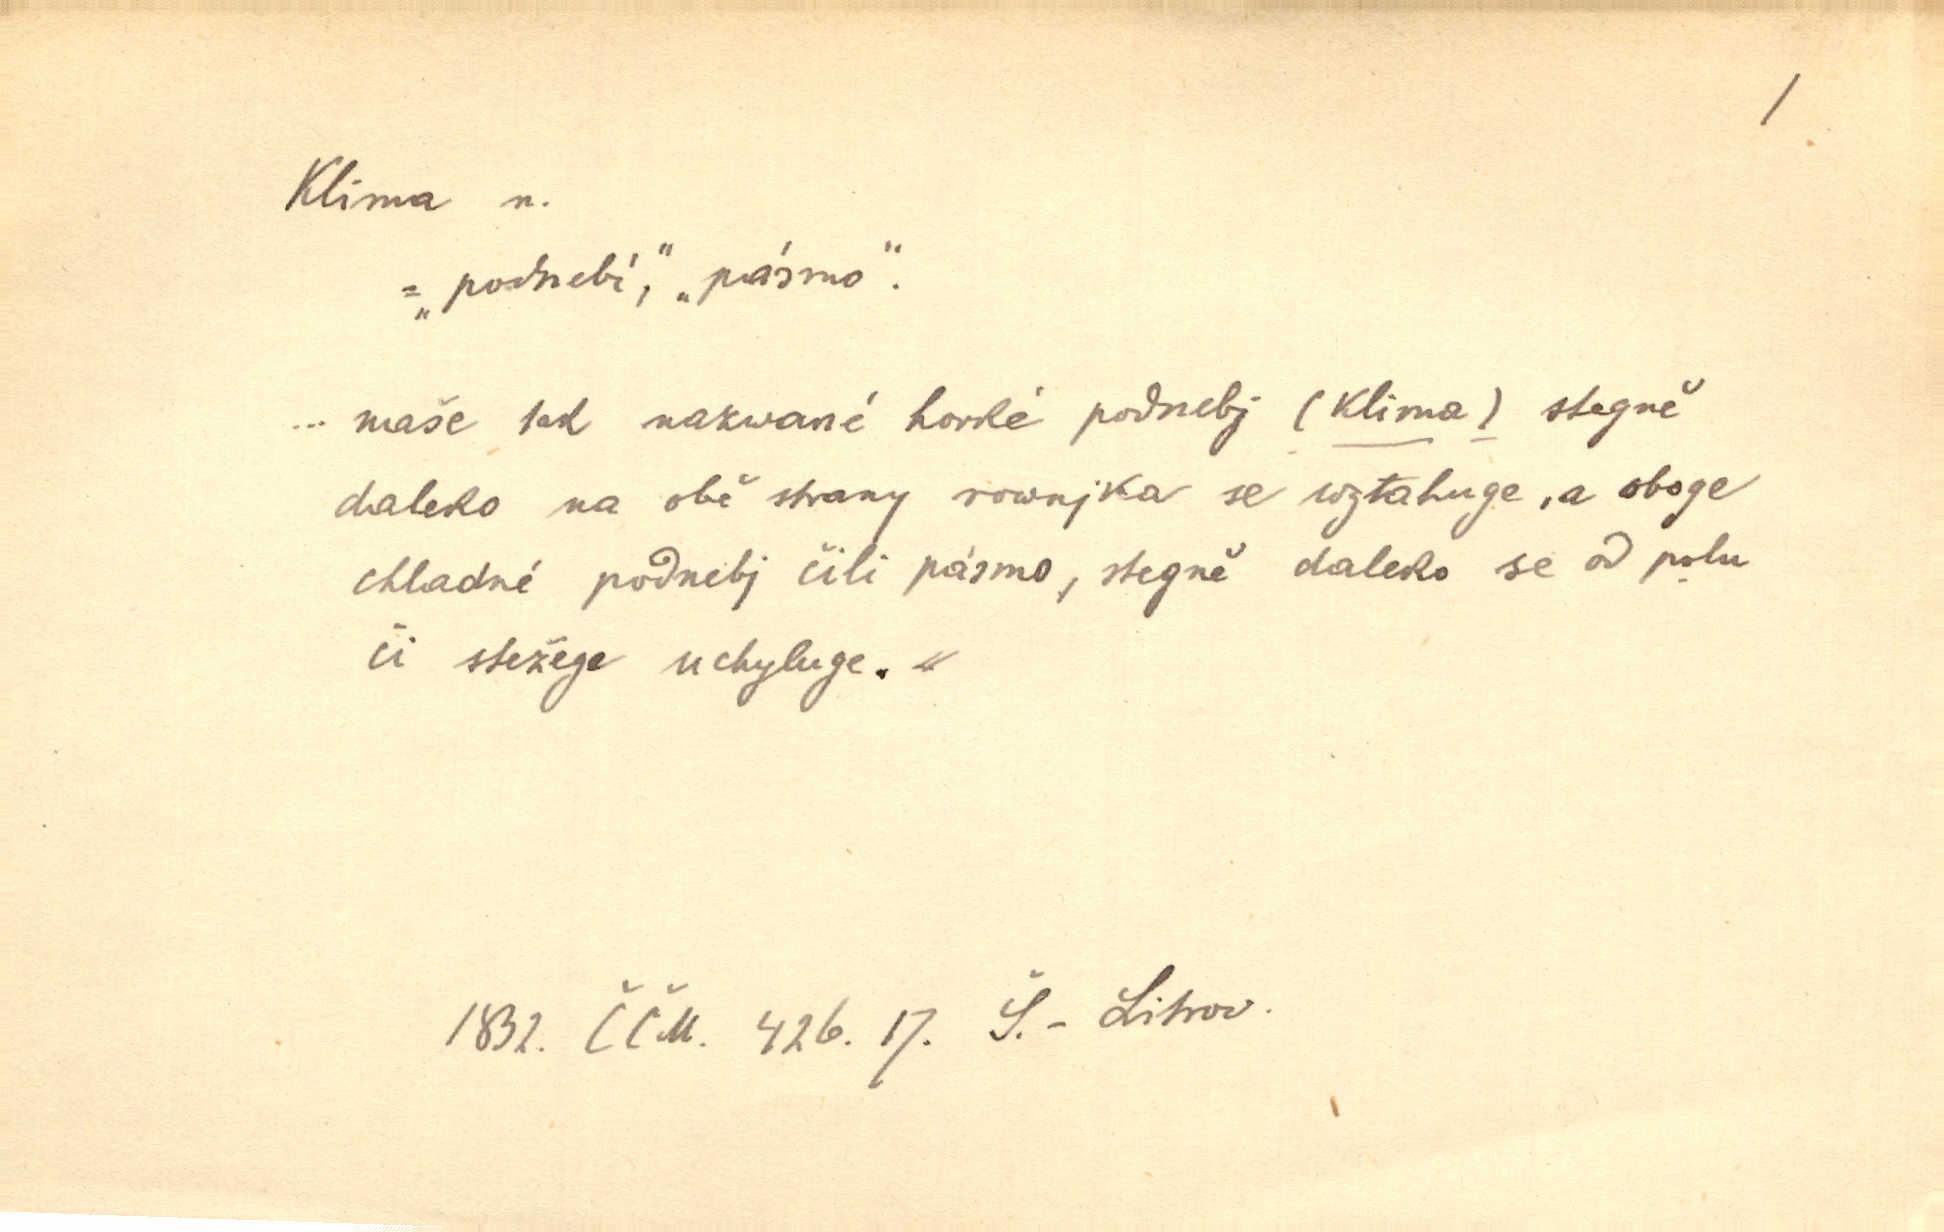 /
Klima n.
= „podnebí“, „pásmo“.
... naše tak nazwané horké podnebj (Klima) stegně
daleko na obě strany rownjka se wztahuge, a oboge
chladné podnebj čili pásmo, stegně daleko se od polu
či stežege uchyluge. “
1832. ČČM. 426. 17. Š. - Litrow.